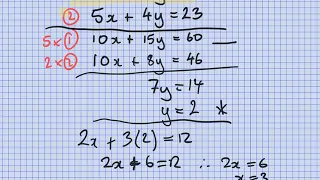 ② 5x + 4y = 23
5×① 10x + 15y = 60
2×② 10x + 8y = 46
7y = 14
y = 2 *
2x + 3(2) = 12
2x + 6 = 12 ∴ 2x = 6
x = 3